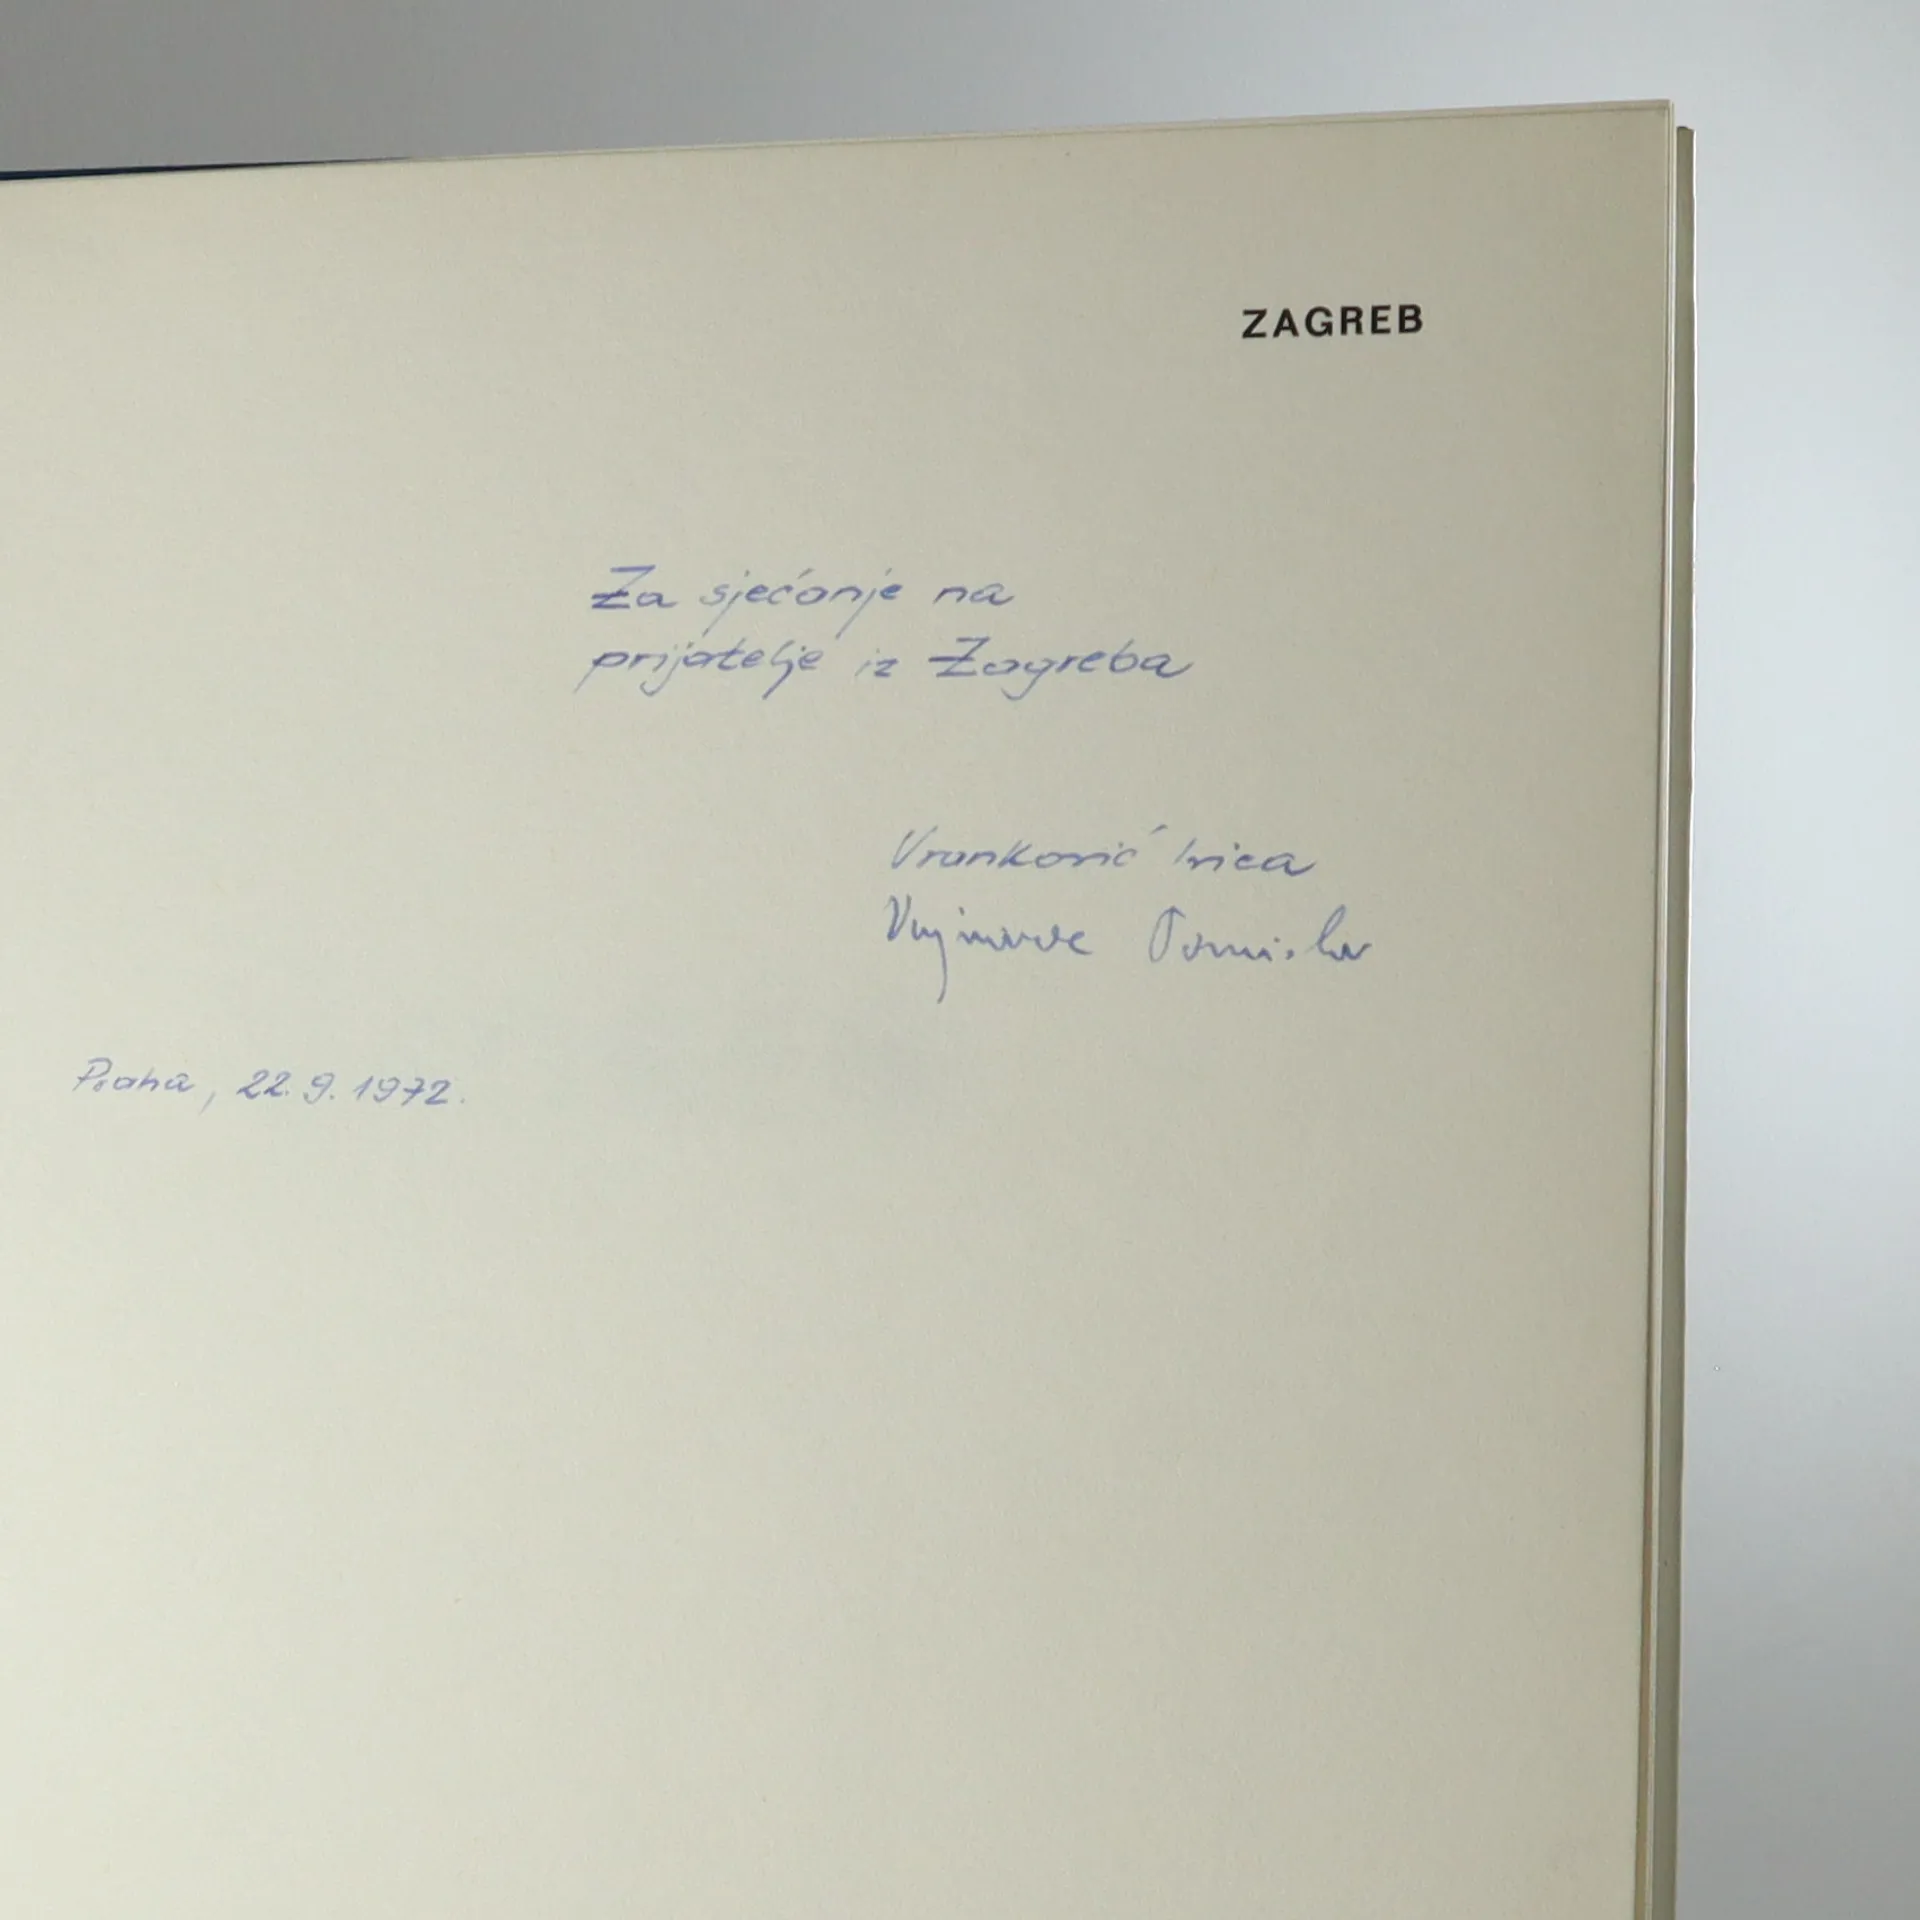 ZAGREB
Za sjećanje na
prijatelje iz Zagreba
Vranković Ivica
Tomislav
Praha, 22.9.1972.